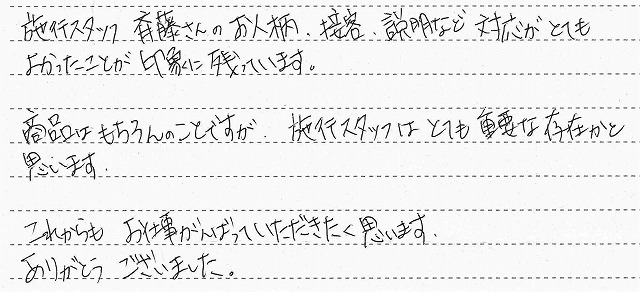 施行スタッフ 斉藤さんの お人柄、接客、説明など 対応が とても
よかったことが 印象に 残っています。
商品は もちろんのことですが、施行スタッフは とても 重要な 存在かと
思います。
これからも お仕事がんばっていただきたく 思います。
ありがとう ございました。